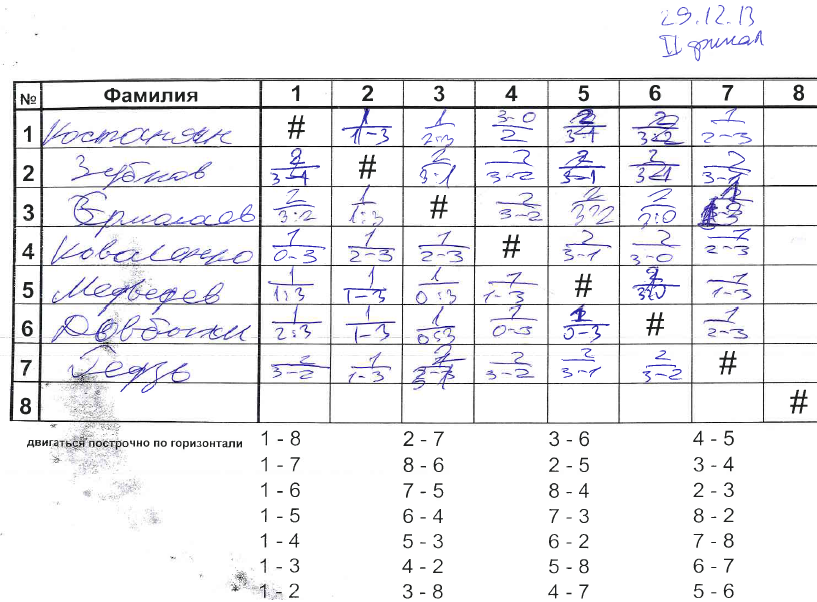 29.12.13
II финал
№ Фамилия 1 2 3 4 5 6 7 8
1 Костанян # 1/1-3 1/2:3 3-0/2 2/3-1 2/3:2 1/2-3
2 Зубков 2/3-1 # 2/3:1 2/3-2 2/3-1 2/3-1 2/3-1
3 Ермолаев 2/3:2 1/1:3 # 2/3-2 2/3:2 2/3:0
4 Коваленко 1/0-3 1/2-3 1/2-3 # 2/3-1 2/3-0 1/2-3
5 Медведев 1/1:3 1/1-3 1/0:3 1/1-3 # 2/3:0 1/1-3
6 Довбжик 1/2:3 1/1-3 1/0:3 1/0-3 1/0-3 # 1/2-3
7 2/3-2 1/1-3 2/3-2 2/3-1 2/3-2 #
8 #
двигаться построчно по горизонтали 1 - 8 2 - 7 3 - 6 4 - 5
1 - 7 8 - 6 2 - 5 3 - 4
1 - 6 7 - 5 8 - 4 2 - 3
1 - 5 6 - 4 7 - 3 8 - 2
1 - 4 5 - 3 6 - 2 7 - 8
1 - 3 4 - 2 5 - 8 6 - 7
1 - 2 3 - 8 4 - 7 5 - 6